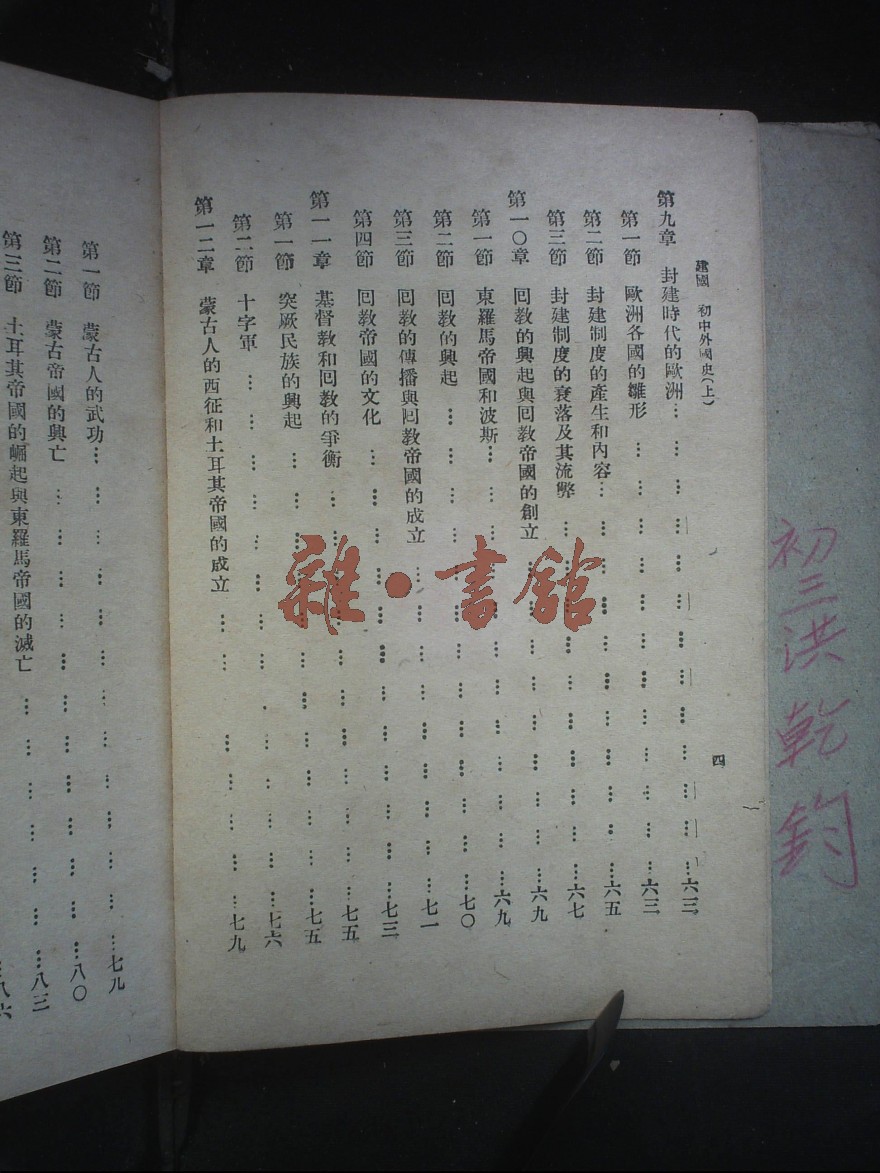 建國 初中外國史(上)
四
第九章 封建時代的歐洲……六三
第一節 歐洲各國的雛形……六三
第二節 封建制度的產生和內容……六五
第三節 封建制度的衰落及其流弊……六七
第一〇章 回教的興起與回教帝國的創立……六九
第一節 東羅馬帝國和波斯……六九
第二節 回教的興起……七〇
第三節 回教的傳播與回教帝國的成立……七一
第四節 回教帝國的文化……七三
第一一章 基督教和回教的爭衡……七五
第一節 突厥民族的興起……七五
第二節 十字軍……七六
第一二章 蒙古人的西征和土耳其帝國的成立……七九
第一節 蒙古人的武功……七九
第二節 蒙古帝國的興亡……八〇
第三節 土耳其帝國的崛起與東羅馬帝國的滅亡……八三
八六
初三洪乾鈞
雜·書館